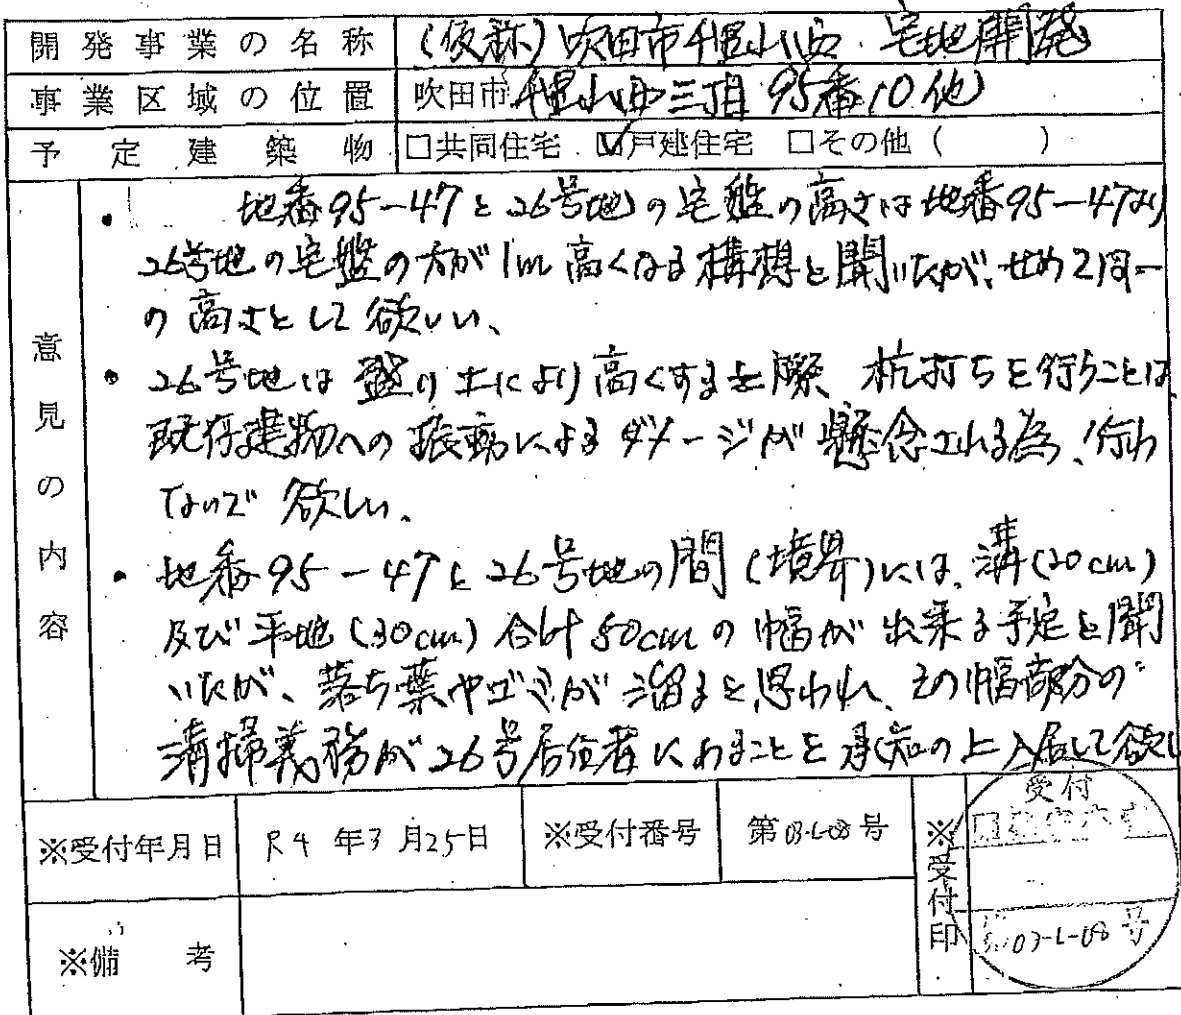 開発事業の名称 (仮称)吹田市千里山西 宅地開発
事業区域の位置 吹田市千里山西三丁目 95番10他
予定建築物 □共同住宅 ☑戸建住宅 □その他( )
意見の内容
・ 地番95-47と26号地の宅盤の高さは地番95-47より
26号地の宅盤の方が1m高くなる構想と聞いたが、せめて同一
の高さとして欲しい、
・26号地は盛り土により高くする際 杭打ちを行うことは
既存建物への振動によるダメージが懸念される為、行わ
ないで欲しい、
・地番95-47と26号地の間(境界)には、溝(20cm)
及び平地(30cm)合計50cmの幅が出来る予定と聞
いたが、落ち葉やゴミが溜ると思われ、その幅部分の
清掃義務が26号居住者にあることを承知の上入居して欲し
※受付年月日 R4年3月25日 ※受付番号 第03-L-08号 ※受付印
受付
第03-L-08号
※備考